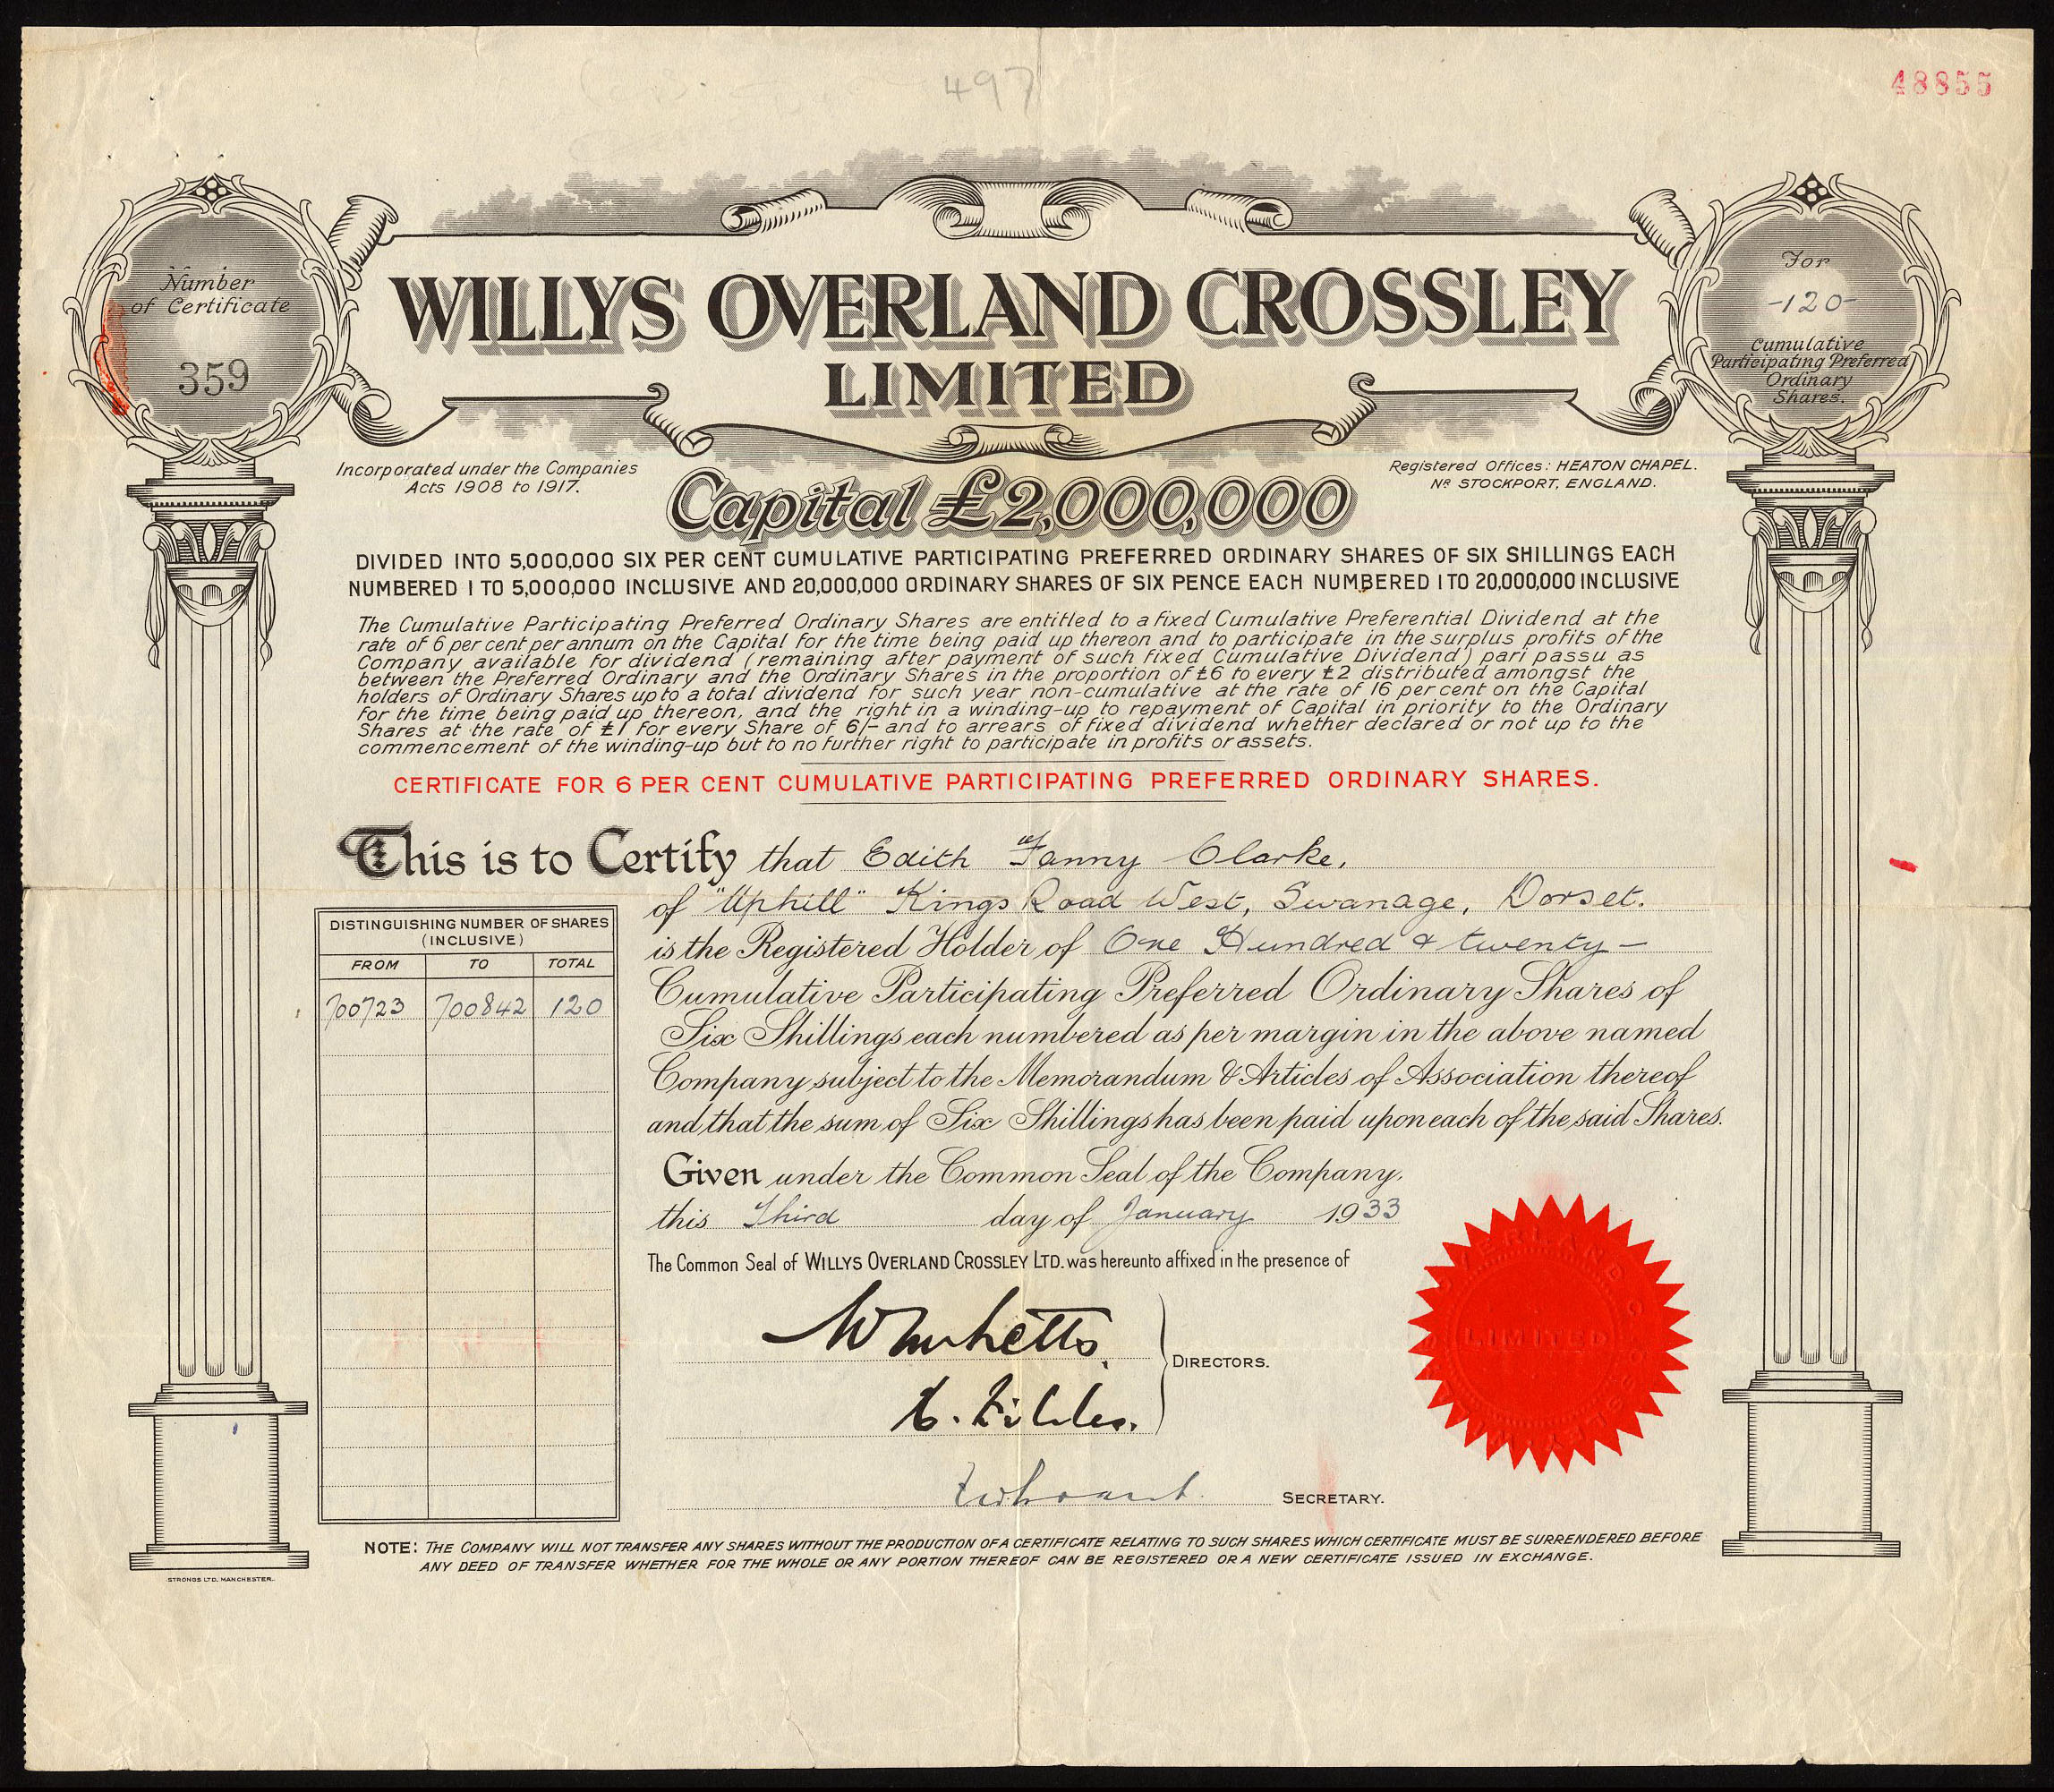 497
48855
Number
of Certificate
359
WILLYS OVERLAND CROSSLEY
LIMITED
For
-120-
Cumulative
Participating Preferred
Ordinary
Shares.
Incorporated under the Companies
Acts 1908 to 1917.
Registered Offices: HEATON CHAPEL.
NR STOCKPORT, ENGLAND.
Capital £2,000,000
DIVIDED INTO 5,000,000 SIX PER CENT CUMULATIVE PARTICIPATING PREFERRED ORDINARY SHARES OF SIX SHILLINGS EACH
NUMBERED 1 TO 5,000,000 INCLUSIVE AND 20,000,000 ORDINARY SHARES OF SIX PENCE EACH NUMBERED 1 TO 20,000,000 INCLUSIVE
The Cumulative Participating Preferred Ordinary Shares are entitled to a fixed Cumulative Preferential Dividend at the
rate of 6 per cent per annum on the Capital for the time being paid up thereon and to participate in the surplus profits of the
Company available for dividend (remaining after payment of such fixed Cumulative Dividend) pari passu as
between the Preferred Ordinary and the Ordinary Shares in the proportion of £6 to every £2 distributed amongst the
holders of Ordinary Shares up to a total dividend for such year non-cumulative at the rate of 16 per cent on the Capital
for the time being paid up thereon, and the right in a winding-up to repayment of Capital in priority to the Ordinary
Shares at the rate of £1 for every Share of 6/- and to arrears of fixed dividend whether declared or not up to the
commencement of the winding-up but to no further right to participate in profits or assets.
CERTIFICATE FOR 6 PER CENT CUMULATIVE PARTICIPATING PREFERRED ORDINARY SHARES.
This is to Certify that Edith Fanny Clarke,
of "Uphill" Kings Road West, Swanage, Dorset.
is the Registered Holder of One Hundred & twenty -
Cumulative Participating Preferred Ordinary Shares of
Six Shillings each numbered as per margin in the above named
Company subject to the Memorandum & Articles of Association thereof
and that the sum of Six Shillings has been paid upon each of the said Shares.
Given under the Common Seal of the Company,
this Third day of January 1933
DISTINGUISHING NUMBER OF SHARES
(INCLUSIVE)
FROM TO TOTAL
700723 700842 120
The Common Seal of WILLYS OVERLAND CROSSLEY LTD. was hereunto affixed in the presence of
DIRECTORS.
SECRETARY.
OVERLAND
LIMITED
NOTE: THE COMPANY WILL NOT TRANSFER ANY SHARES WITHOUT THE PRODUCTION OF A CERTIFICATE RELATING TO SUCH SHARES WHICH CERTIFICATE MUST BE SURRENDERED BEFORE
ANY DEED OF TRANSFER WHETHER FOR THE WHOLE OR ANY PORTION THEREOF CAN BE REGISTERED OR A NEW CERTIFICATE ISSUED IN EXCHANGE.
STRONGS LTD. MANCHESTER.